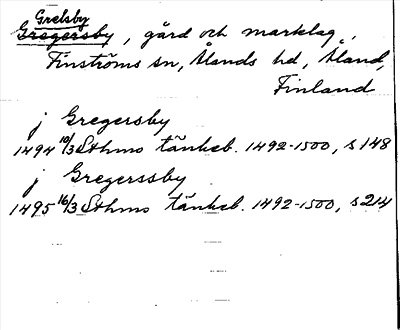 Grelsby
Gregersby, gård och marklag,
Finströms sn, Ålands hd, Åland,
Finland
j Gregersby
1494 10/3 Sthms tänkeb. 1492-1500, s 148
j Gregerssby
1495 16/3 Sthms tänkeb. 1492-1500, s 214